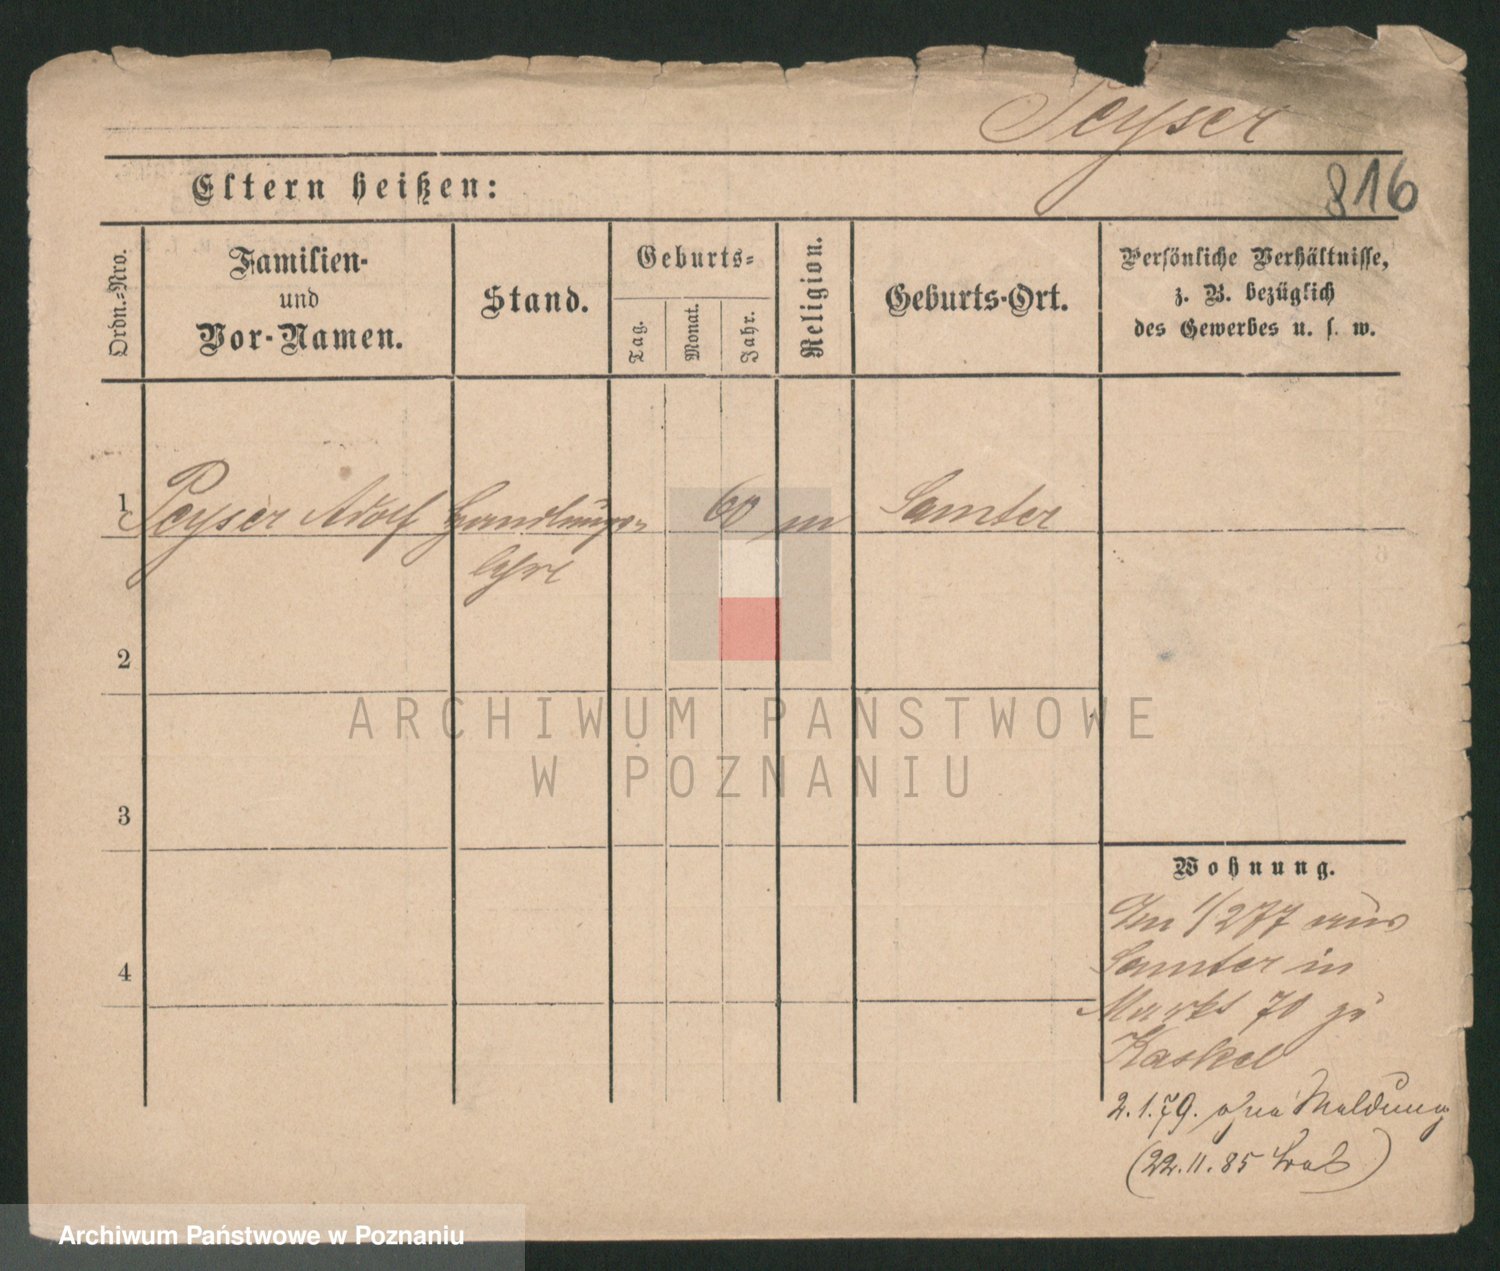 Peyser
816
Eltern heißen:
Ordn.=Nro.
Familien-
und
Vor-Namen.
Stand.
Geburts=
Tag.
Monat.
Jahr.
Religion.
Geburts-Ort.
Persönliche Verhältnisse,
z. B. bezüglich
des Gewerbes u. s. w.
1 Peyser Adolf Handlungs- 60 m Samter
2
3
4
ARCHIWUM PAŃSTWOWE
W POZNANIU
Wohnung.
Im 1/277 aus
Samter in
Markt 70 zu
Kaskel
2.1.79. ohne Meldung
(22.11.85
Archiwum Państwowe w Poznaniu